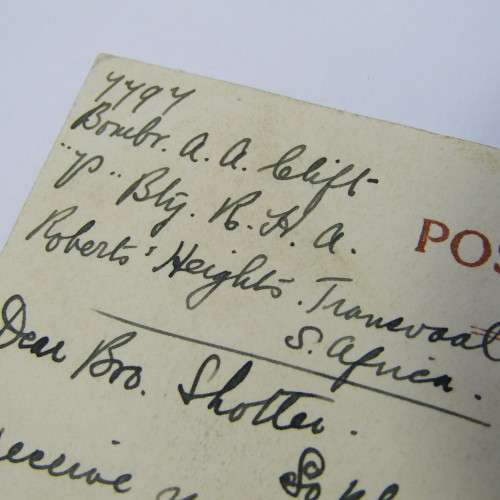 7797
Bombr. A. A. Clift
"P" Bty. R. H. A.
Roberts' Heights. Transvaal
S. Africa.
POS
Dear Bro. Shotter.
receive